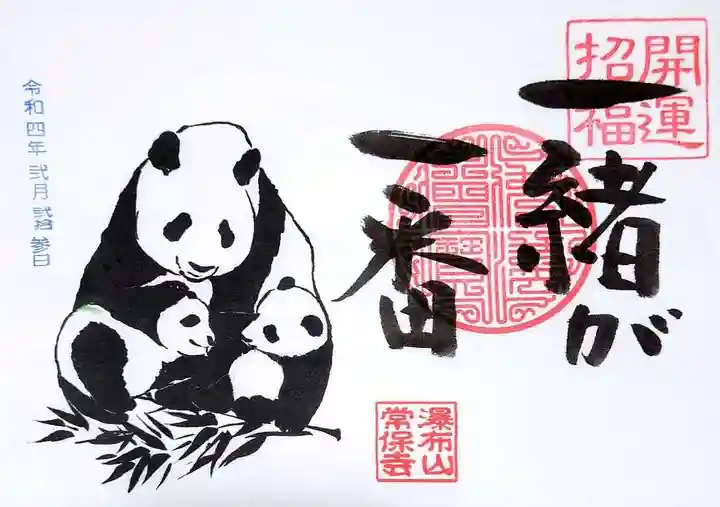 開運
招福
一緒が
一番
瀑布山
常保寺
令和四年 弐月 弐拾参日